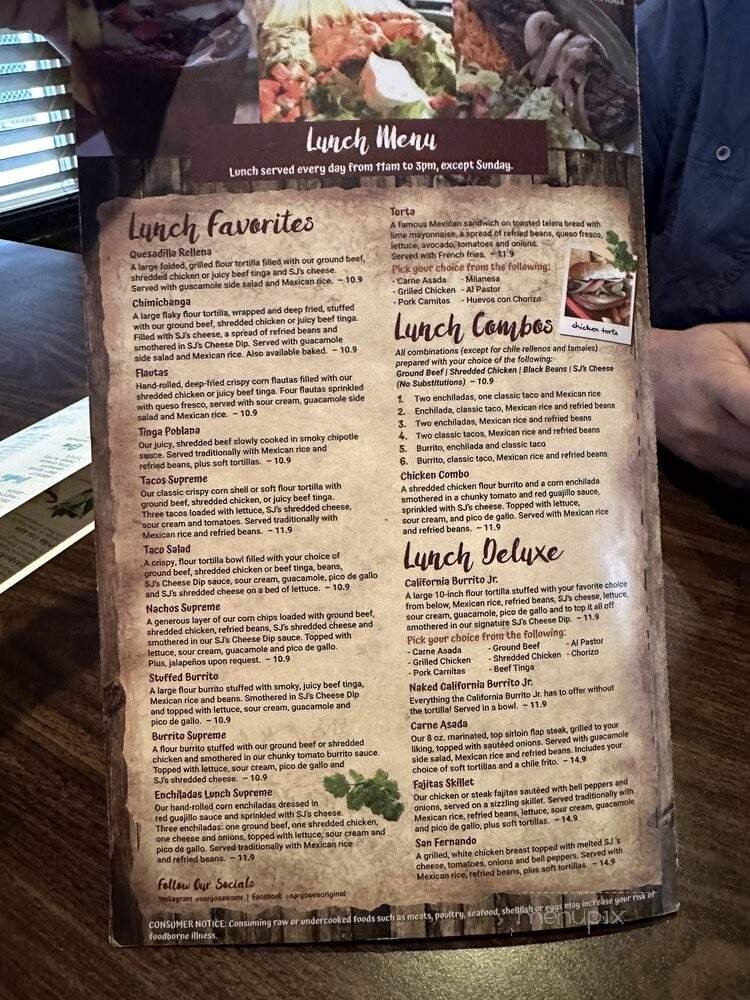 Lunch Menu
Lunch served every day from 11am to 3pm, except Sunday.
Lunch Favorites
Quesadilla Rellena
A large folded, grilled flour tortilla filled with our ground beef,
shredded chicken or juicy beef tinga and SJ's cheese.
Served with guacamole side salad and Mexican rice. – 10.9
Chimichanga
A large flaky flour tortilla, wrapped and deep fried, stuffed
with our ground beef, shredded chicken or juicy beef tinga.
Filled with SJ's cheese, a spread of refried beans and
smothered in SJ's Cheese Dip. Served with guacamole
side salad and Mexican rice. Also available baked. – 10.9
Flautas
Hand-rolled, deep-fried crispy corn flautas filled with our
shredded chicken or juicy beef tinga. Four flautas sprinkled
with queso fresco, served with sour cream, guacamole side
salad and Mexican rice. – 10.9
Tinga Poblana
Our juicy, shredded beef slowly cooked in smoky chipotle
sauce. Served traditionally with Mexican rice and
refried beans, plus soft tortillas. – 10.9
Tacos Supreme
Our classic crispy corn shell or soft flour tortilla with
ground beef, shredded chicken, or juicy beef tinga.
Three tacos loaded with lettuce, SJ's shredded cheese,
sour cream and tomatoes. Served traditionally with
Mexican rice and refried beans. – 11.9
Taco Salad
A crispy, flour tortilla bowl filled with your choice of
ground beef, shredded chicken or beef tinga, beans,
SJ's Cheese Dip sauce, sour cream, guacamole, pico de gallo
and SJ's shredded cheese on a bed of lettuce. – 10.9
Nachos Supreme
A generous layer of our corn chips loaded with ground beef,
shredded chicken, refried beans, SJ's shredded cheese and
smothered in our SJ's Cheese Dip sauce. Topped with
lettuce, sour cream, guacamole and pico de gallo.
Plus, jalapeños upon request. – 10.9
Stuffed Burrito
A large flour burrito stuffed with smoky, juicy beef tinga,
Mexican rice and beans. Smothered in SJ's Cheese Dip
and topped with lettuce, sour cream, guacamole and
pico de gallo. – 10.9
Burrito Supreme
A flour burrito stuffed with our ground beef or shredded
chicken and smothered in our chunky tomato burrito sauce.
Topped with lettuce, sour cream, pico de gallo and
SJ's shredded cheese. – 10.9
Enchiladas Lunch Supreme
Our hand-rolled corn enchiladas dressed in
red guajillo sauce and sprinkled with SJ's cheese.
Three enchiladas: one ground beef, one shredded chicken,
one cheese and onions, topped with lettuce, sour cream and
pico de gallo. Served traditionally with Mexican rice
and refried beans. – 11.9
Follow Our Socials
Facebook:
Torta
A famous Mexican sandwich on toasted telera bread with
lime mayonnaise, a spread of refried beans, queso fresco,
lettuce, avocado, tomatoes and onions.
Served with French fries. – 11.9
Pick your choice from the following:
- Carne Asada - Milanesa
- Grilled Chicken - Al Pastor
- Pork Carnitas - Huevos con Chorizo
chicken torta
Lunch Combos
All combinations (except for chile rellenos and tamales)
prepared with your choice of the following:
Ground Beef | Shredded Chicken | Black Beans | SJ's Cheese
(No Substitutions) – 10.9
1. Two enchiladas, one classic taco and Mexican rice
2. Enchilada, classic taco, Mexican rice and refried beans
3. Two enchiladas, Mexican rice and refried beans
4. Two classic tacos, Mexican rice and refried beans
5. Burrito, enchilada and classic taco
6. Burrito, classic taco, Mexican rice and refried beans
Chicken Combo
A shredded chicken flour burrito and a corn enchilada
smothered in a chunky tomato and red guajillo sauce,
sprinkled with SJ's cheese. Topped with lettuce,
sour cream, and pico de gallo. Served with Mexican rice
and refried beans. – 11.9
Lunch Deluxe
California Burrito Jr.
A large 10-inch flour tortilla stuffed with your favorite choice
from below, Mexican rice, refried beans, SJ's cheese, lettuce,
sour cream, guacamole, pico de gallo and to top it all off
smothered in our signature SJ's Cheese Dip. – 11.9
Pick your choice from the following:
- Carne Asada - Ground Beef - Al Pastor
- Grilled Chicken - Shredded Chicken - Chorizo
- Pork Carnitas - Beef Tinga
Naked California Burrito Jr.
Everything the California Burrito Jr. has to offer without
the tortilla! Served in a bowl. – 11.9
Carne Asada
Our 8 oz. marinated, top sirloin flap steak, grilled to your
liking, topped with sautéed onions. Served with guacamole
side salad, Mexican rice and refried beans. Includes your
choice of soft tortillas and a chile frito. – 14.9
Fajitas Skillet
Our chicken or steak fajitas sautéed with bell peppers and
onions, served on a sizzling skillet. Served traditionally with
Mexican rice, refried beans, lettuce, sour cream, guacamole
and pico de gallo, plus soft tortillas. – 14.9
San Fernando
A grilled, white chicken breast topped with melted SJ 's
cheese, tomatoes, onions and bell peppers. Served with
Mexican rice, refried beans, plus soft tortillas. – 14.9
CONSUMER NOTICE: Consuming raw or undercooked foods such as meats, poultry, seafood, shellfish or eggs may increase your risk of
foodborne illness.
menupix